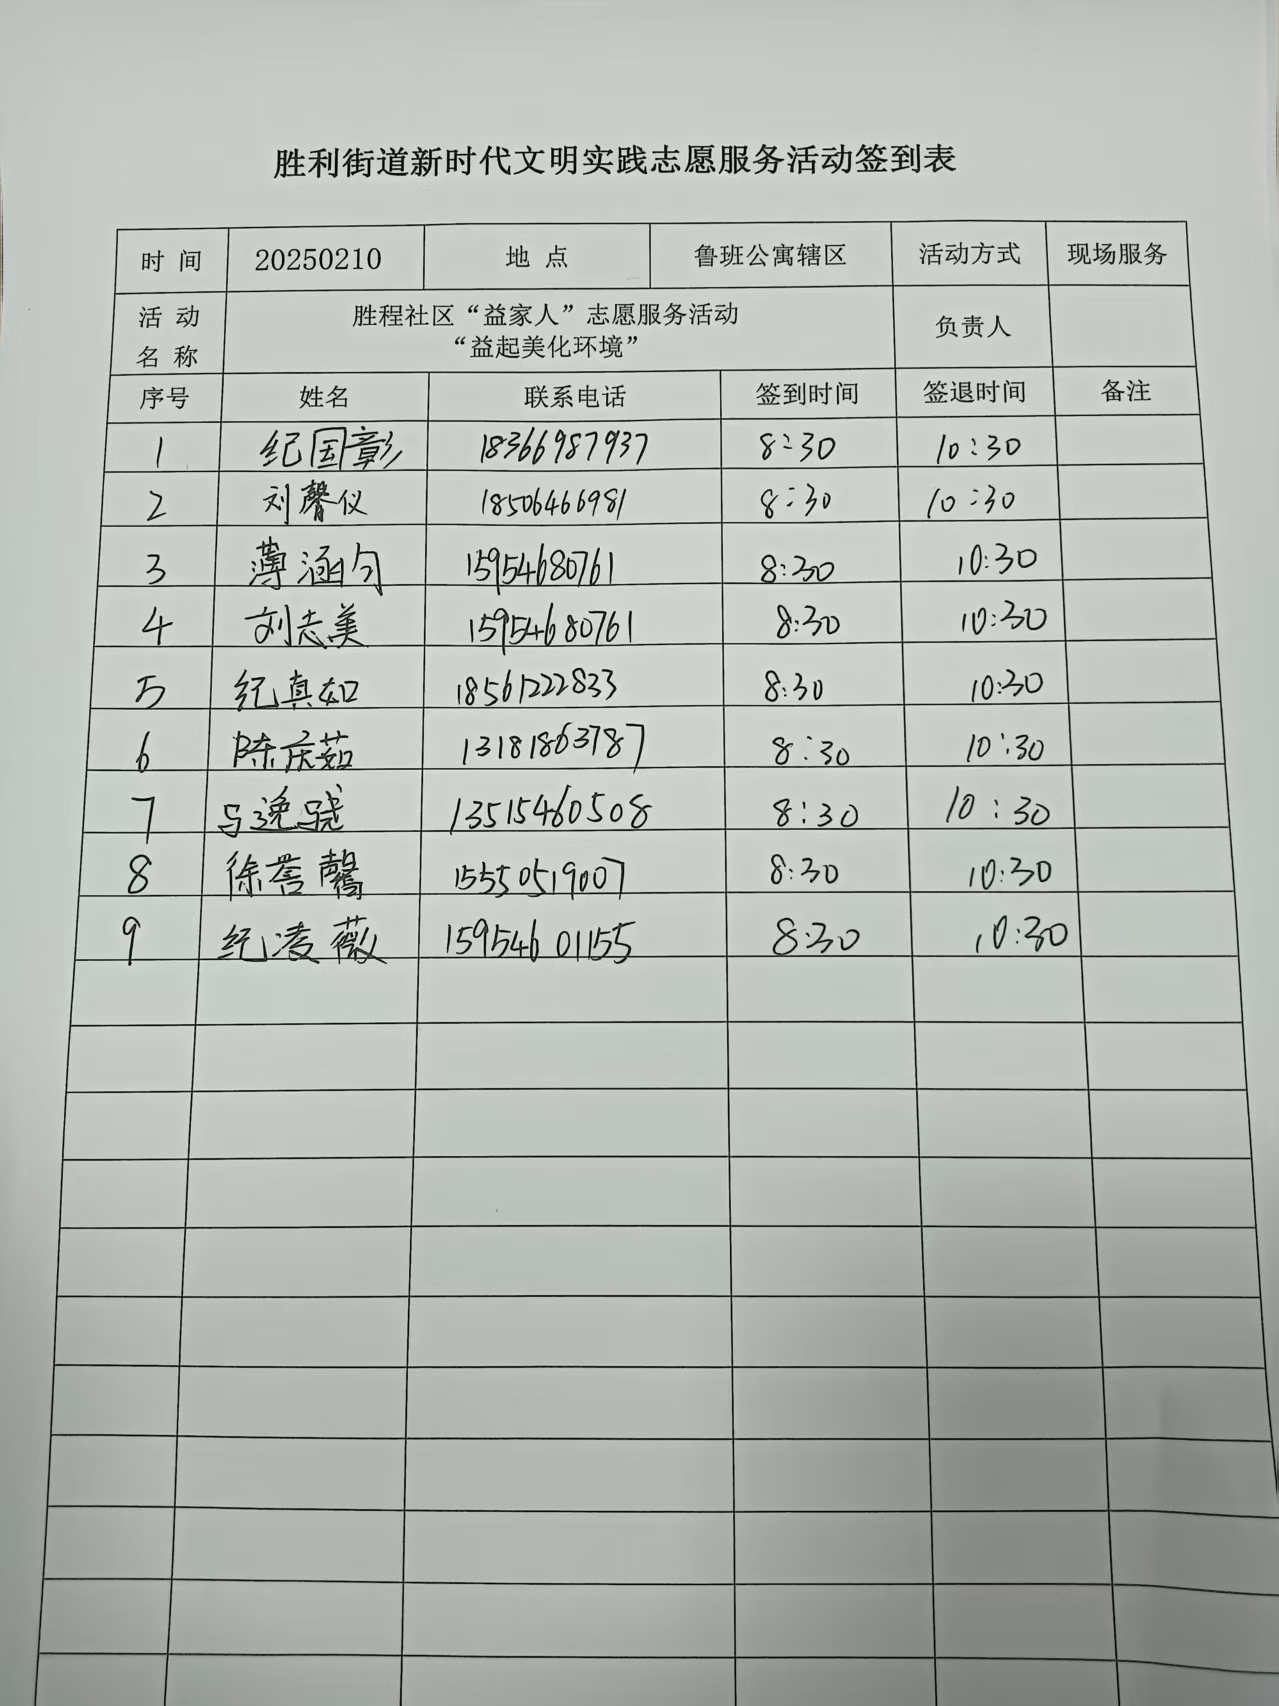 胜利街道新时代文明实践志愿服务活动签到表
时 间 20250210 地 点 鲁班公寓辖区 活动方式 现场服务
活 动 名 称 胜程社区“益家人”志愿服务活动 负责人
“益起美化环境”
序号 姓名 联系电话 签到时间 签退时间 备注
1 纪国彰 18366987937 8:30 10:30
2 刘馨仪 18506466981 8:30 10:30
3 薄涵匀 15954680761 8:30 10:30
4 刘志美 15954680761 8:30 10:30
5 纪真如 18561222833 8:30 10:30
6 陈庆茹 13181863787 8:30 10:30
7 马逸骁 13515460508 8:30 10:30
8 徐誉馨 15550519007 8:30 10:30
9 纪凌薇 15954601155 8:30 10:30